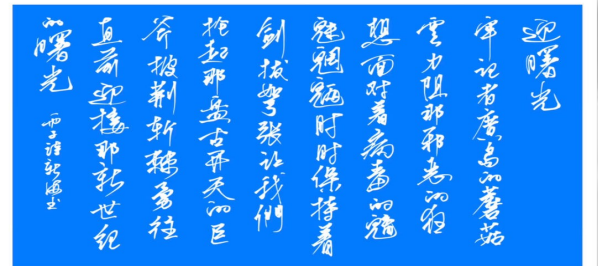 迎曙光
牢记着廣岛的蘑菇
雲力阻那邪恶的狂
想面对着病毒的魑
魅魍魉时时保持着
剑拔弩张让我們
抡起那盘古开天的巨
斧披荆斩棘勇往
直前迎接那新世纪
的曙光